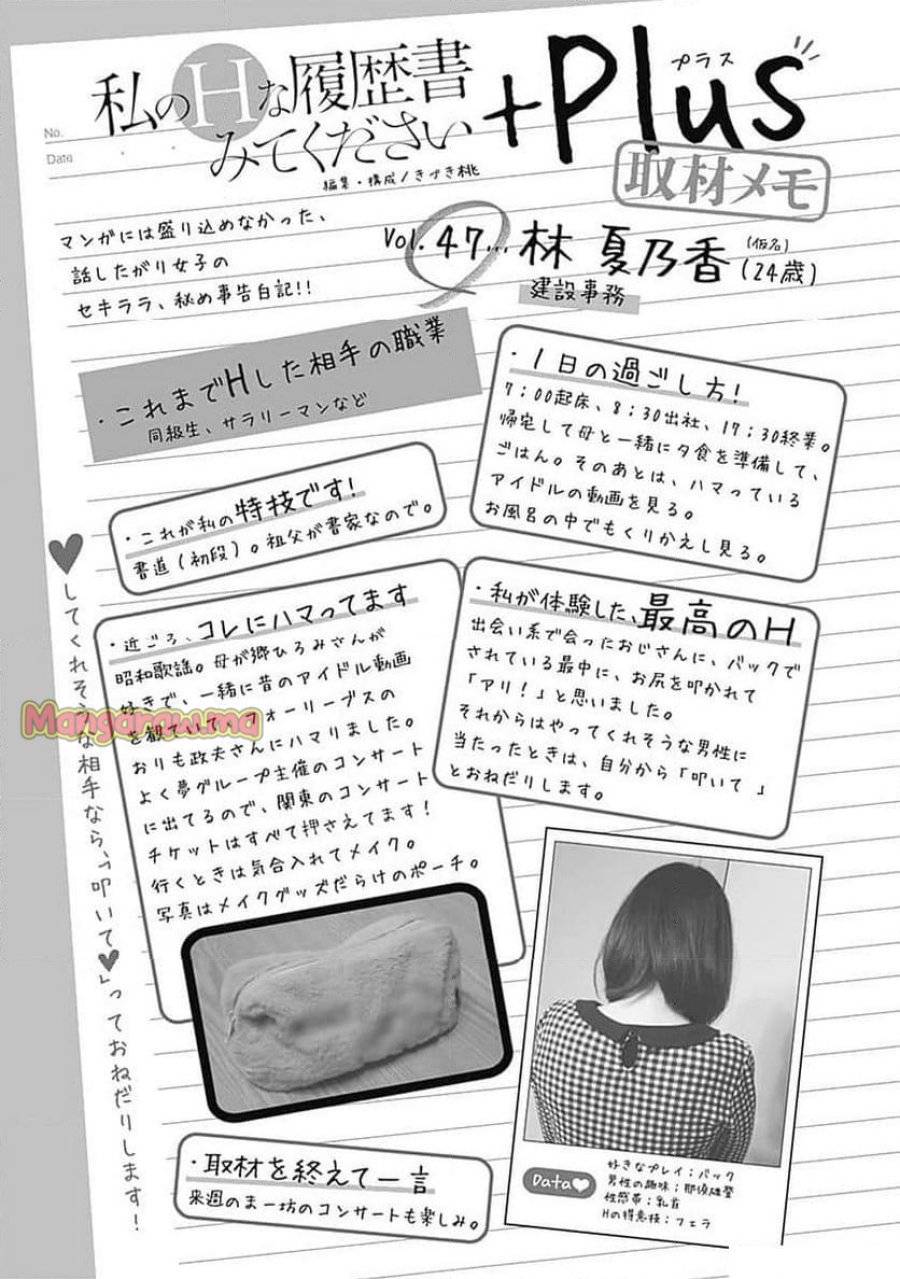 No.
Date
私のHな履歴書
みてください
+Plus
プラス
取材メモ
編集・構成/きづき桃
マンガには盛り込めなかった、
話したがり女子の
セキララ、秘め事告白記!!
Vol.47... 林 夏乃香
(仮名)
(24歳)
建設事務
・これまでHした相手の職業
同級生、サラリーマンなど
・1日の過ごし方!
7:00起床、8:30出社、17:30終業。
帰宅して母と一緒に夕食を準備して、
ごはん。そのあとは、ハマっている
アイドルの動画を見る。
お風呂の中でもくりかえし見る。
・これが私の特技です!
書道(初段)。祖父が書家なので。
・近ごろ、コレにハマってます
昭和歌謡。母が郷ひろみさんが
好きで、一緒に昔のアイドル動画
を観ていて、フォーリーブスの
おりも政夫さんにハマりました。
よく夢グループ主催のコンサート
に出てるので、関東のコンサート
チケットはすべて押さえてます!
行くときは気合入れてメイク。
写真はメイクグッズだらけのポーチ。
Mangaraw.ma
・私が体験した、最高のH
出会い系で会ったおじさんに、バックで
されている最中に、お尻を叩かれて
「アリ!」と思いました。
それからはやってくれそうな男性に
当たったときは、自分から「叩いて」
とおねだりします。
♥してくれそうな相手なら、「叩いて♥」っておねだりします!
・取材を終えて一言
来週のまー坊のコンサートも楽しみ。
Data♥
好きなプレイ:バック
男性の趣味:那須雄登
性感帯:乳首
Hの得意技:フェラ